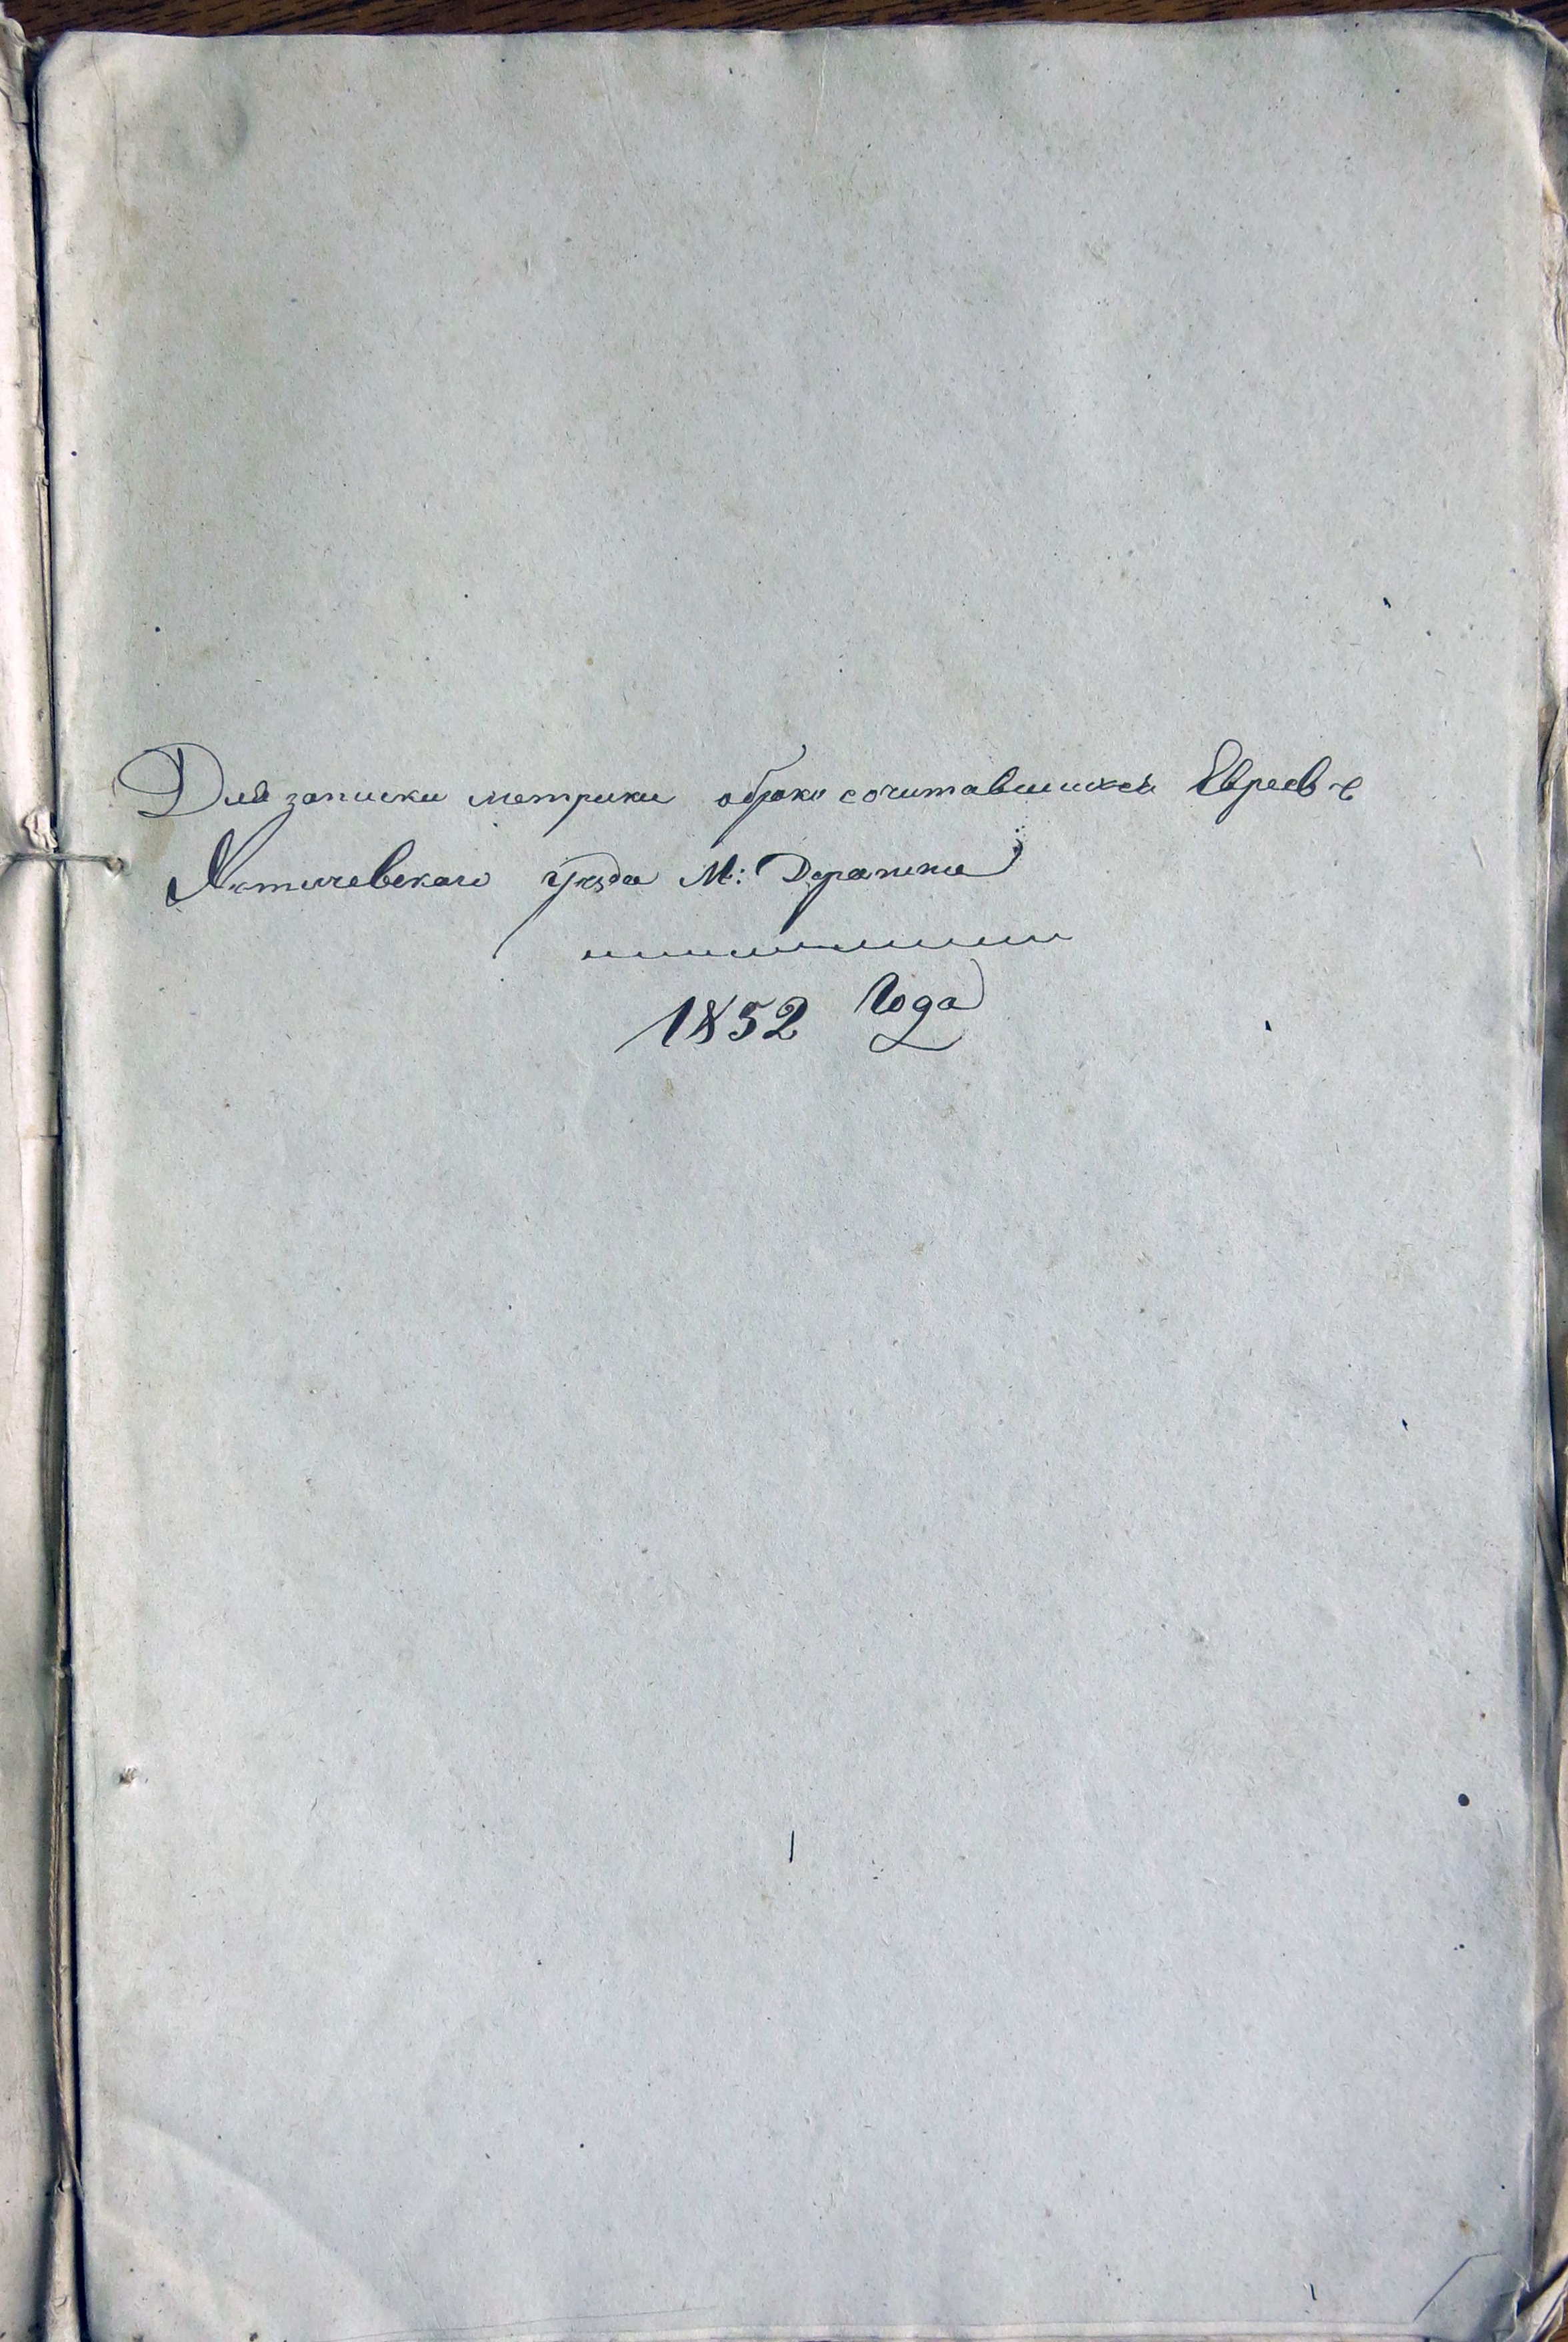 Для записки метрики обрако сочитавшихся Евреевъ
Летичевскаго уезда М: Деражни
1852 Года